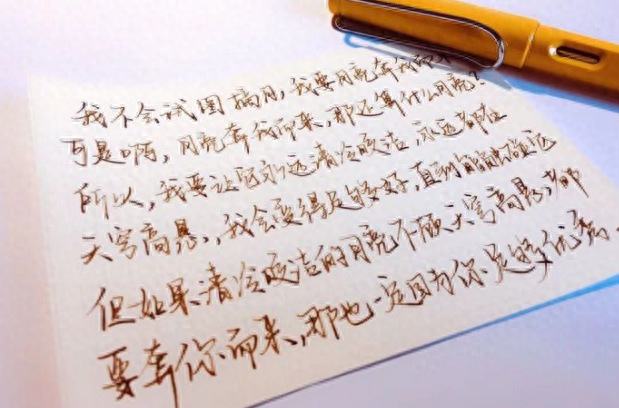 我不会试图摘月,我要月亮奔我而来
可是啊,月亮奔我而来,那还算什么月亮?
所以,我要让它永远清冷皎洁,永远都在
天穹高悬,我会变得足够好,直到能触碰它
但如果清冷皎洁的月亮不顾天穹高悬,都
要奔你而来,那也一定因为你足够优秀。